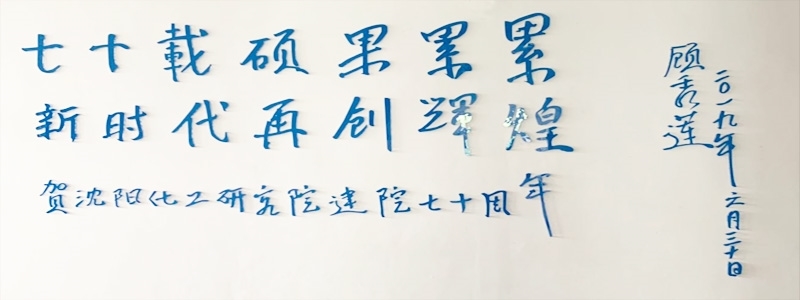 七十載硕果累累
新时代再创輝煌
贺沈阳化工研究院建院七十周年
顾秀莲
二〇一九年六月三十日